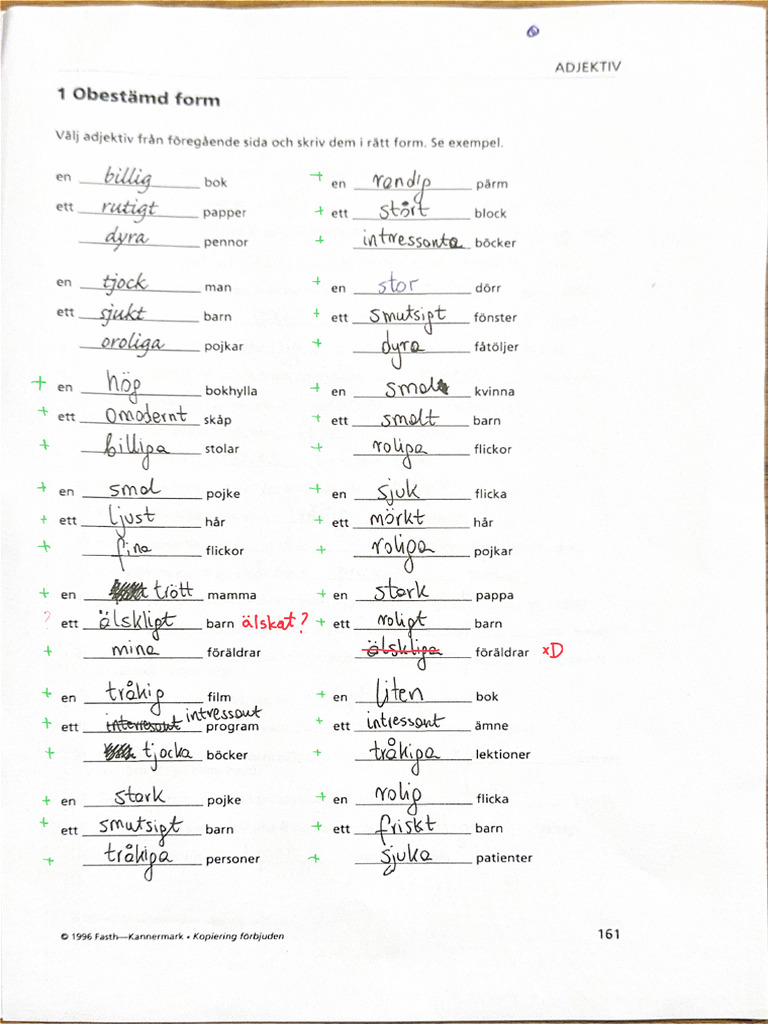 ADJEKTIV
1 Obestämd form
Välj adjektiv från föregående sida och skriv dem i rätt form. Se exempel.
en billig bok
ett rutigt papper
dyra pennor
en tjock man
ett sjukt barn
oroliga pojkar
+ en hög bokhylla
+ ett omodernt skåp
+ billiga stolar
+ en smal pojke
+ ett ljust hår
+ fina flickor
+ en trött mamma
? ett älskligt barn älskat?
+ mina föräldrar
+ en tråkig film
+ ett interresant intressant program
+ tjocka böcker
+ en stark pojke
+ ett smutsigt barn
+ tråkiga personer
+ en randig pärm
+ ett stort block
+ intressanta böcker
+ en stor dörr
+ ett smutsigt fönster
+ dyra fåtöljer
+ en smal kvinna
+ ett smalt barn
+ roliga flickor
+ en sjuk flicka
+ ett mörkt hår
+ roliga pojkar
+ en stark pappa
+ ett roligt barn
älskliga föräldrar xD
+ en liten bok
+ ett intressant ämne
+ tråkiga lektioner
+ en rolig flicka
+ ett friskt barn
+ sjuka patienter
© 1996 Fasth—Kannermark • Kopiering förbjuden
161